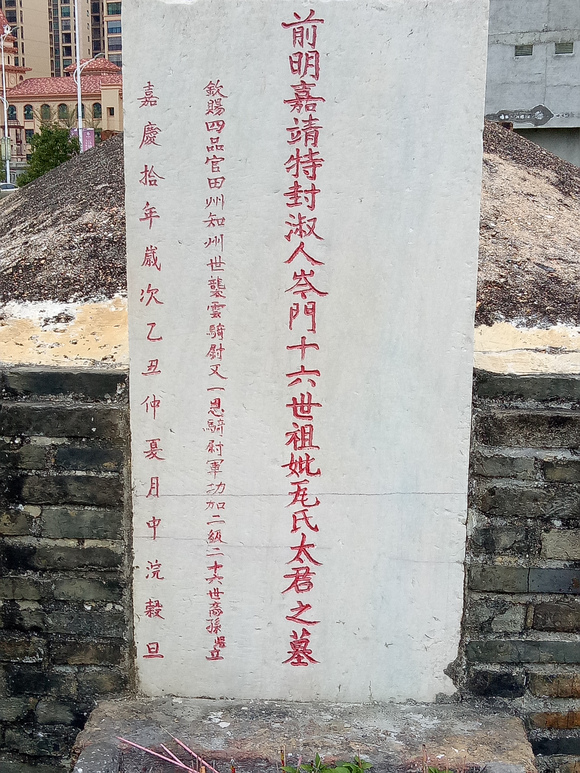 前明嘉靖特封淑人岑門十六世祖妣瓦氏太君之墓
欽賜四品官田州知州世襲雲騎尉又一恩騎尉軍功加二級二十六世裔孫煜立
嘉慶拾年歲次乙丑仲夏月中浣穀旦